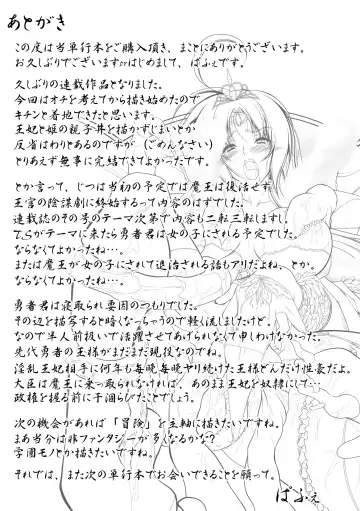 あとがき
この度は当単行本をご購入頂き、まことにありがとうございます。
お久しぶりでございますorはじめまして、ぱふぇです。
久しぶりの連載作品となりました。
今回はオチを考えてから描き始めたので
キチンと着地できたと思います。
王妃と姫の親子丼を描かずじまいとか
反省はわりとあるのですが（ごめんなさい）
とりあえず無事に完結できてよかったです。
とか言って、じつは当初の予定では魔王は復活せず
王宮の陰謀劇に終始するって内容のはずでした。
連載誌のその号のテーマ次第で内容も二転三転しますし。
T.Sがテーマに来たら勇者君は女の子にされる予定でした。
ならなくてよかったね…。
または魔王が女の子にされて退治される話もアリだよね、とか。
ならなくてよかったね…。
勇者君は寝取られ要因のつもりでした。
その辺を描写すると暗くなっちゃうので軽く流しましたけど。
なので半人前扱いで活躍させてあげられなくて申しわけなかった。
先代勇者の王様がまだまだ現役なのでね。
淫乱王妃相手に何年も毎晩毎晩ヤり続けた王様どんだけ性豪だよ。
大臣は魔王に乗っ取られなければ、あのまま王妃を奴隷にして…
政権を握る前に干涸らびたことでしょう。
次の機会があれば「冒険」を主軸に描きたいですね。
まあ当分は非ファンタジーが多くなるかな？
学園モノとか描きたいですね。
それでは、また次の単行本でお会いできることを願って。
ぱふぇ